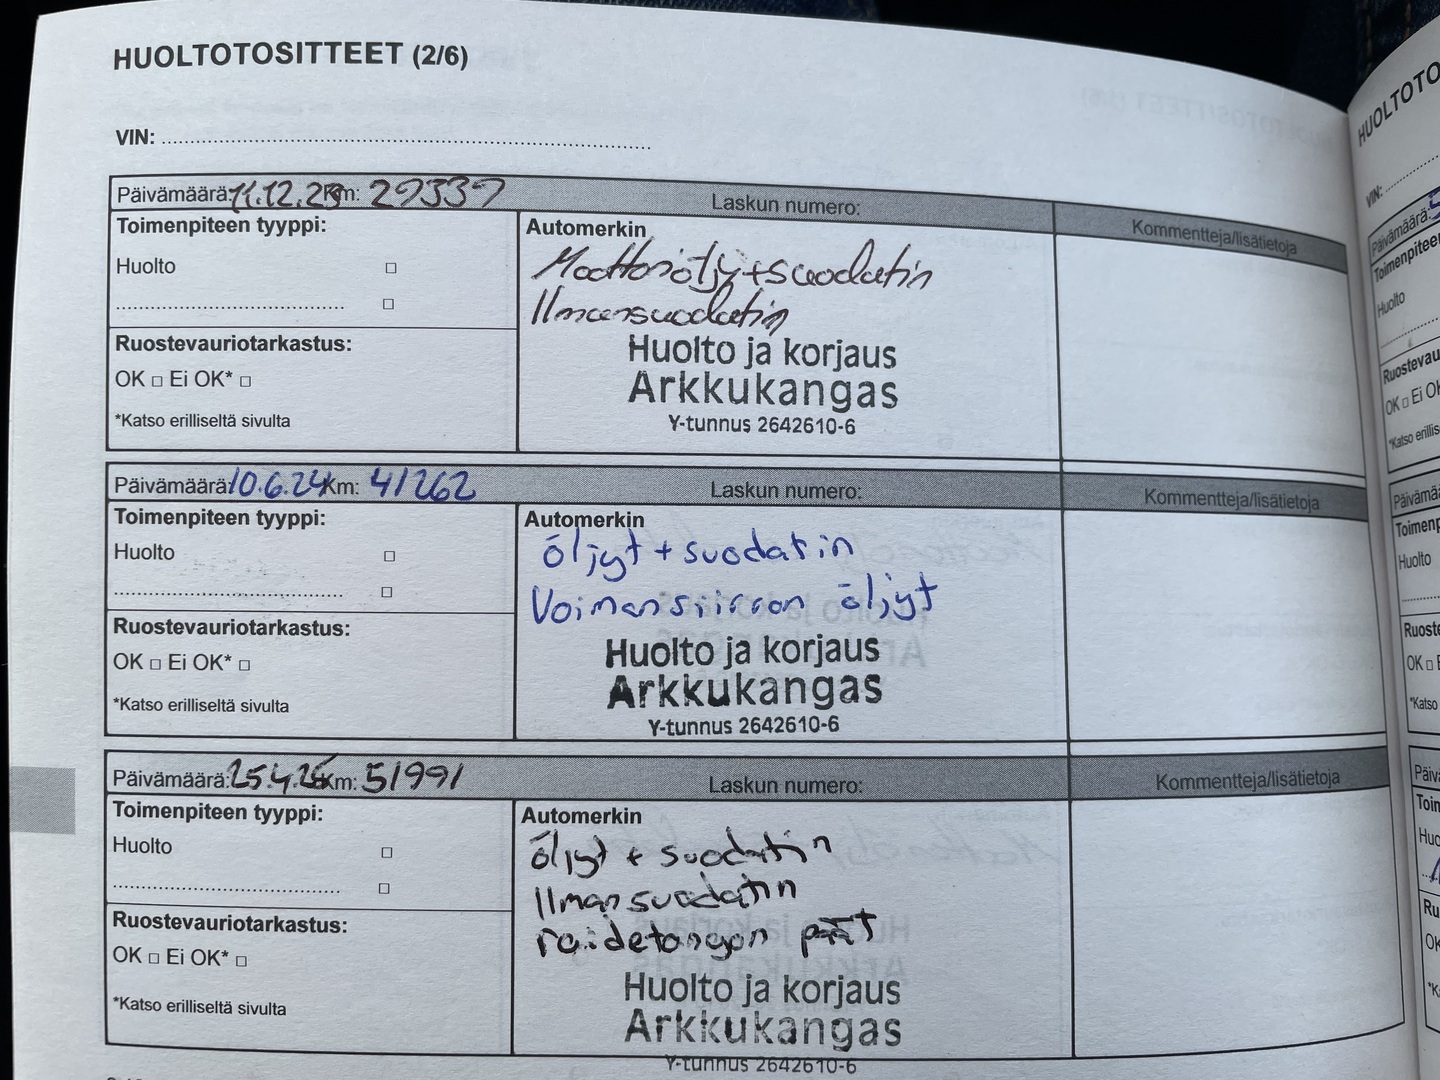 HUOLTOTOSITTEET (2/6)
VIN:
Päivämäärä: 11.12.23 Km: 29339 Laskun numero: Kommentteja/lisätietoja
Toimenpiteen tyyppi: Automerkin
Huolto Moottoriöljy+suodatin
Ilmansuodatin
Ruostevauriotarkastus: Huolto ja korjaus
OK □ Ei OK* □ Arkkukangas
*Katso erilliseltä sivulta Y-tunnus 2642610-6
Päivämäärä: 10.6.24 Km: 41262 Laskun numero: Kommentteja/lisätietoja
Toimenpiteen tyyppi: Automerkin
Huolto öljyt + suodatin
Voimansiirron öljyt
Ruostevauriotarkastus: Huolto ja korjaus
OK □ Ei OK* □ Arkkukangas
*Katso erilliseltä sivulta Y-tunnus 2642610-6
Päivämäärä: 25.4.25 Km: 51991 Laskun numero: Kommentteja/lisätietoja
Toimenpiteen tyyppi: Automerkin
Huolto öljyt + suodatin
Ilmansuodatin
raidetangon päät
Ruostevauriotarkastus: Huolto ja korjaus
OK □ Ei OK* □ Arkkukangas
*Katso erilliseltä sivulta Y-tunnus 2642610-6
HUOLTOTO
VIN:
Päivämäärä:
Huolto
OK □ Ei OK
Huolto
OK □
*Katso